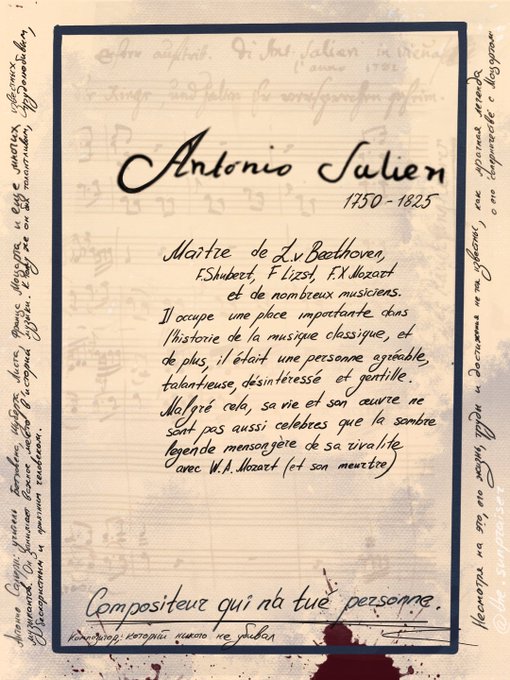 Antonio Salieri
1750-1825
Maître de L.v Beethoven,
F.Shubert, F Lizst, F.X Mozart
et de nombreux musiciens.
Il occupe une place importante dans
l'histoire de la musique classique, et
de plus, il était une personne agréable,
talantieuse, désintéressé et gentille.
Malgré cela, sa vie et son œuvre ne
sont pas aussi celebres que la sombre
legende mensongère de sa rivalite
avec W.A. Mozart (et son meurtre)
Compositeur qui n'a tué personne.
Композитор: который никого не убивал
Антонио Сальери: учитель Бетховена, Шуберта, Листа, Франца Моцарта и еще многих известных
музыкантов. Он занимает важное место в истории музыки. К тому же он был талантливым, трудолюбивым,
бескорыстным и приятным человеком.
Несмотря на это, его жизнь, труды и достижения не так известны, как мрачная легенда
о его соперничестве с Моцартом
@the.sunpraiser